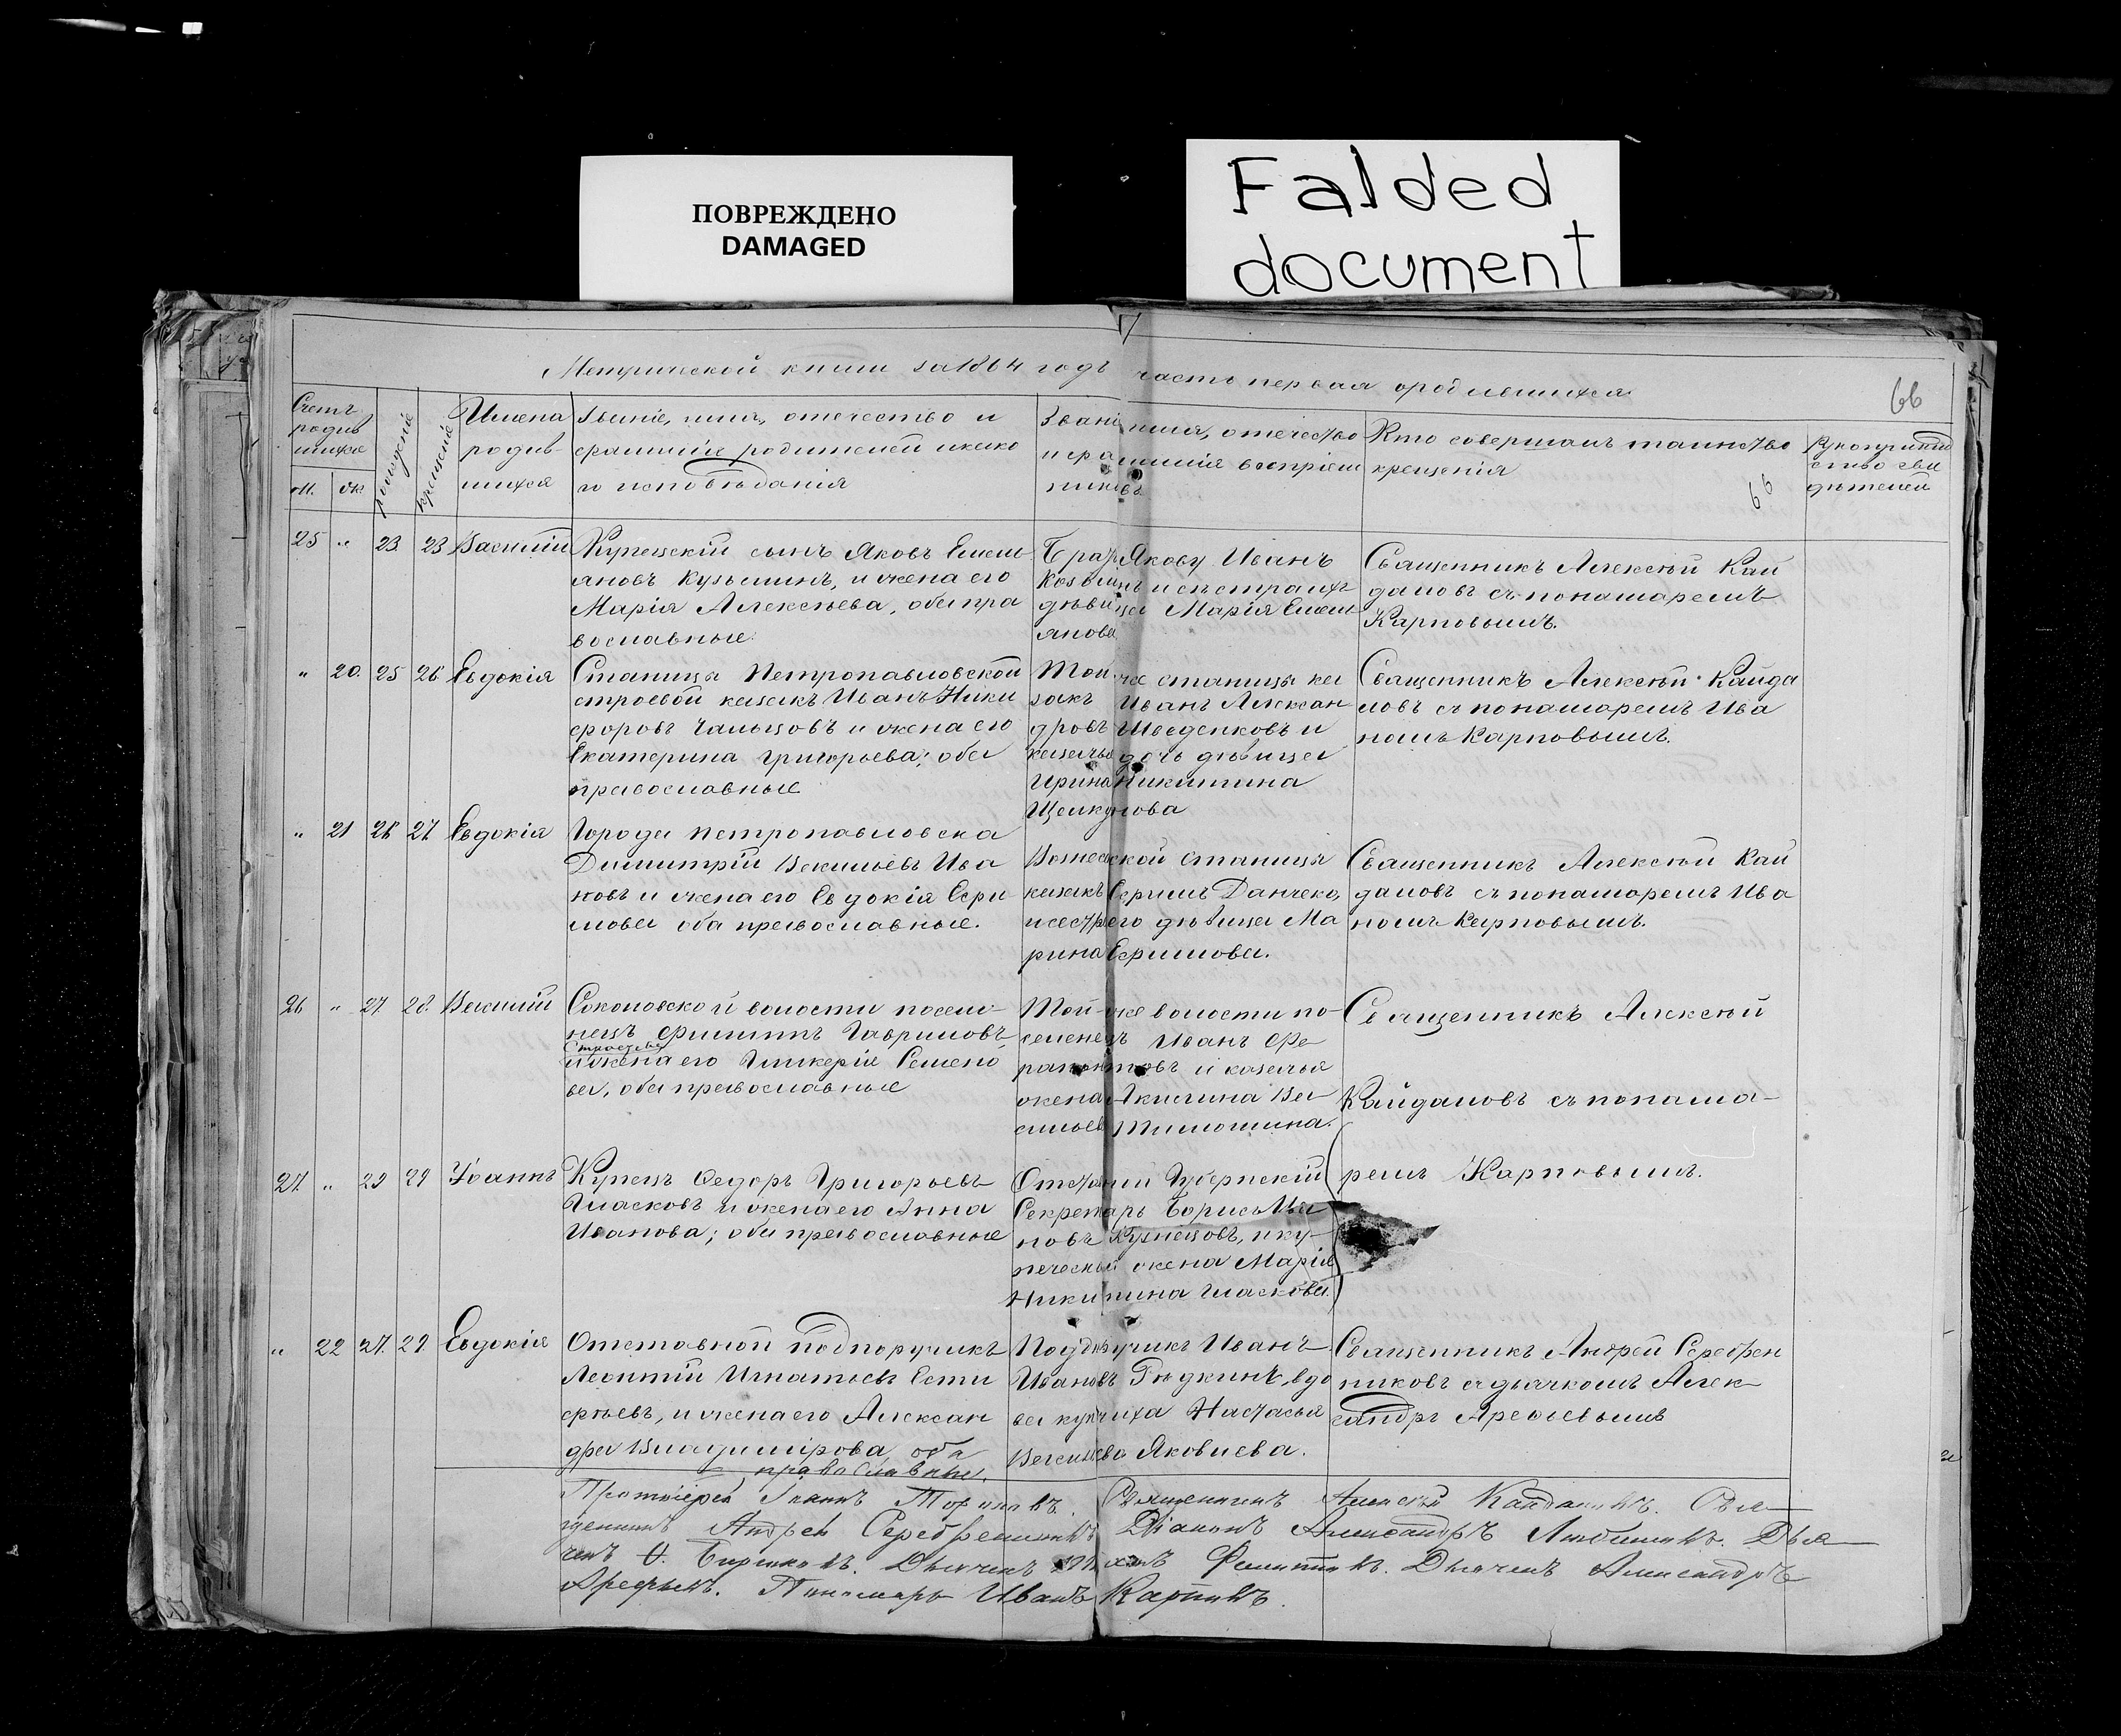 ПОВРЕЖДЕНО
DAMAGED
Falded
document
Метрической книги за 1864 годъ часть первая о родившихся
66
Счетъ родив шихся
м. ж.
рожденiе
крещенiе
Имена
родив
шихся
Званiе, имя, отчество и
фамилiя родителей и како
го исповѣданiя
Званi имя, отчество
и фамилiя воспрiем
никовъ
Кто совершалъ таинство
крещенiя
66
Рукоприклад
ство сви
дѣтелей
25 " 23 23 Василiй
Купецкiй сынъ Яковъ Емели
ановъ Кузьминъ, и жена его
Марiя Алексѣева, оба пра
вославные.
Братъ Якову Иванъ
Козьминъ и сестра ихъ
дѣвица Марiя Емели
янова
Священникъ Алексѣй Кай
даловъ съ пономаремъ
Карповымъ.
" 20. 25 26 Евдокiя
Станицы Петропавловской
строевой казакъ Иванъ Ники
форовъ Чальцовъ и жена его
Екатерина Григорьева; оба
православные
Той же станицы ка
закъ Иванъ Алексан
дровъ Шведенковъ и
казачья дочь дѣвица
Ирина Никитина
Щелкунова
Священникъ Алексѣй Кайда
ловъ съ пономаремъ Ива
номъ Карповымъ.
" 21 26 27 Евдокiя
Города Петропавловска
Димитрiй Васильевъ Ива
новъ и жена его Евдокiя Ефи
мова оба православные.
Вознесенской станицы
казакъ Ефимъ Данчеко,
и сестра его дѣвица Ма
рина Ефимова.
Священникъ Алексѣй Кай
даловъ съ пономаремъ Ива
номъ Карповымъ.
26 " 27. 28. Василiй
Соколовской волости поселе-
нецъ Филиппъ Гавриловъ
и жена его Гликерiя Семено
ва, оба православные
Той-же волости по-
селенецъ Иванъ Фе
рапонтовъ и казачья
жена Акилина Ва
сильева Тимошина.
Священникъ Алексѣй
Кайдаловъ съ понама-
ремъ Карповымъ.
27. " 29 29 Iоаннъ
Купецъ Федоръ Григорьевъ
Гласковъ и жена его Анна
Иванова; оба православные
Отставной Губернскiй
Секретарь Борисъ Ива
новъ Кузнецовъ, и ку-
печеская жена Марiя
Никитина Гласкова.
" 22 27. 29. Евдокiя
Отставной подпоручикъ
Леонтiй Игнатьевъ Евти
фѣевъ, и жена его Алексан
дра Владимiрова оба
православные.
Подпоручикъ Иванъ
Ивановъ Рѣдкинъ, вдо
ва купчиха Настасья
Васильева Яковлева.
Священникъ Андрей Серебрен
никовъ съ дьячкомъ Алек
сандръ Арефьевымъ
Протоiерей Iоаннъ Священникъ Алексѣй Кайдаловъ. Свя
щенникъ Андрей Серебренниковъ Дiаконъ Александръ Любимовъ. Дья
чекъ Бирюковъ. Дьячекъ Филипповъ. Дьячекъ Александръ
Арефьевъ. Пономарь Иванъ Карповъ.